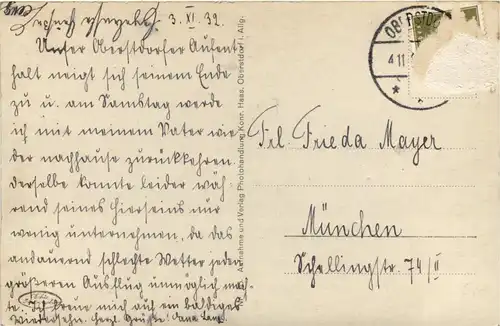 3. XI. 32.
Unser Oberstdorfer Aufent-
halt neigt sich seinem Ende
zu u. am Samstag werde
ich mit meinem Vater wie-
der nachhause zurückkehren.
Derselbe konnte leider wäh-
rend seines Hierseins nur
wenig unternehmen, da das
andauernd schlechte Wetter jeden
größeren Ausflug unmöglich mach-
te. Ich freue mich auf ein baldiges
Wiedersehn. Herzl. Grüße!
Aufnahme und Verlag Photohandlung Konr. Haas, Oberstdorf i. Allg.
OBERSTDO
4.11
Frl. Frieda Mayer
München
Schellingstr. 74/II